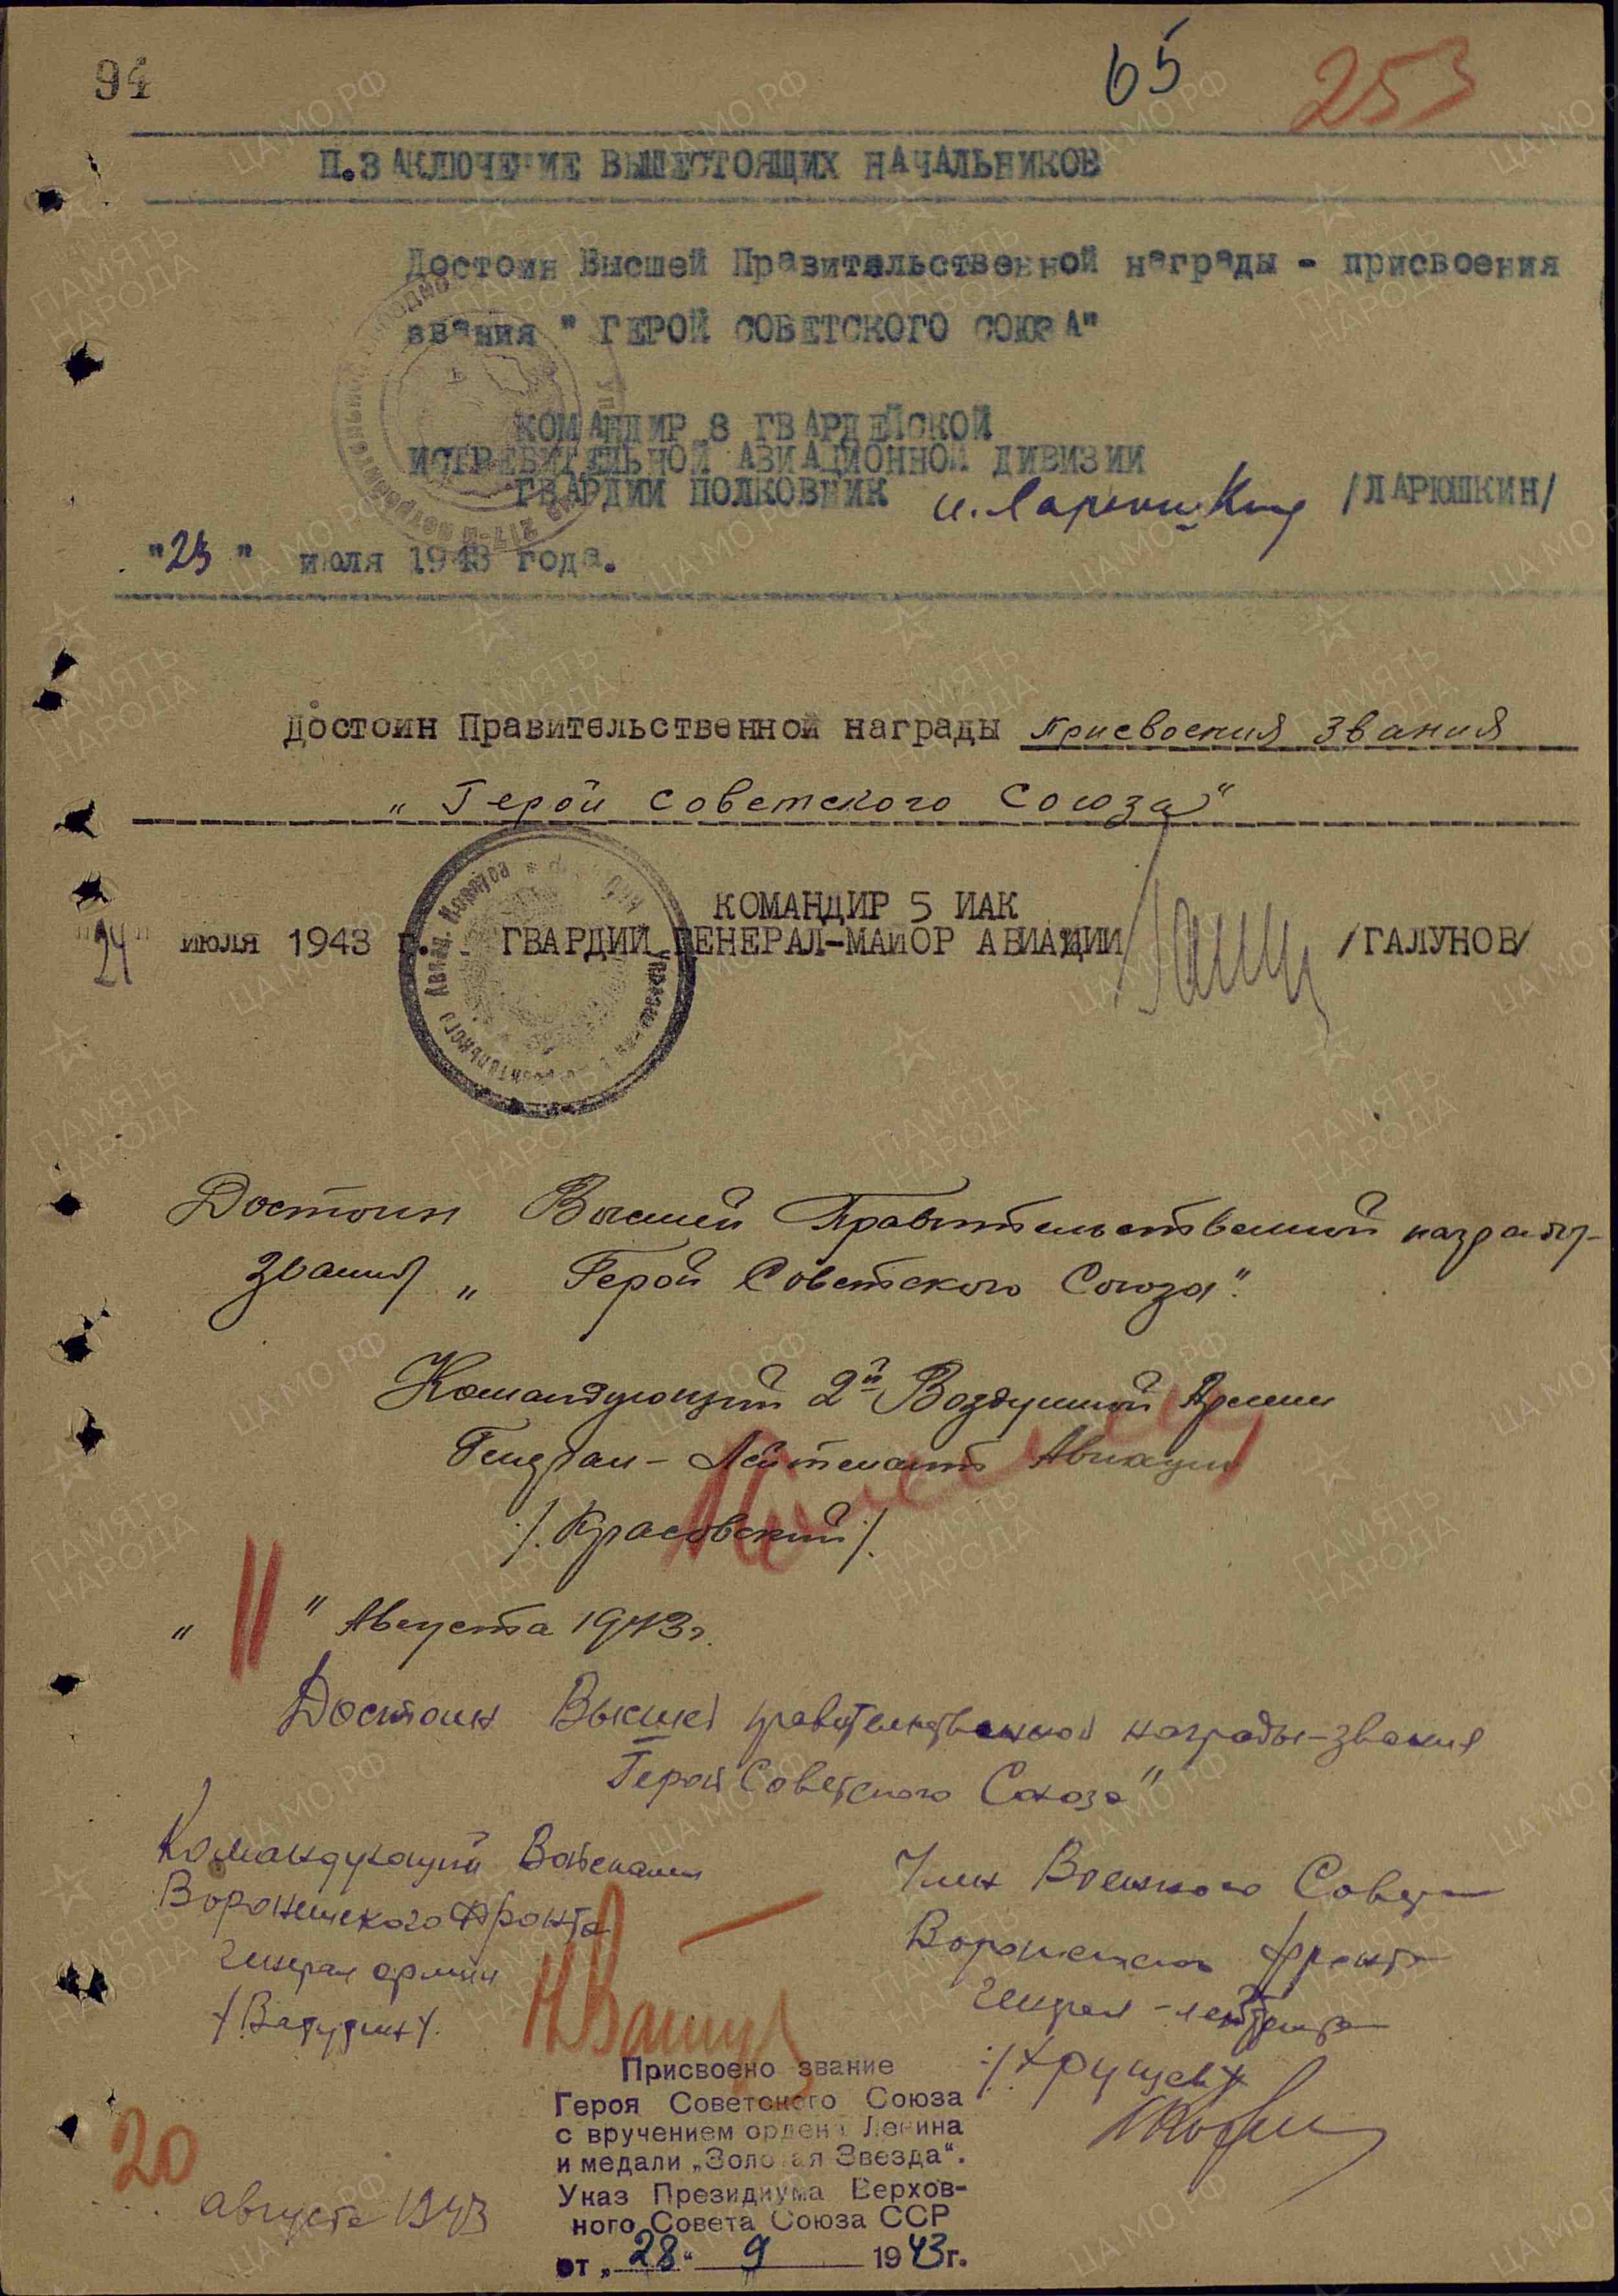 94
65
253
П.ЗАКЛЮЧЕНИЕ ВЫШЕСТОЯЩИХ НАЧАЛЬНИКОВ
Достоин Высшей Правительственной награды - присвоения
звания " ГЕРОЙ СОВЕТСКОГО СОЮЗА"
КОМАНДИР 8 ГВАРДЕЙСКОЙ
ИСТРЕБИТЕЛЬНОЙ АВИАЦИОННОЙ ДИВИЗИИ
ГВАРДИИ ПОЛКОВНИК И. Ларюшкин /ЛАРЮШКИН/
"23" июля 1943 года.
Достоин Правительственной награды присвоения звания
„Герой Советского Союза"
КОМАНДИР 5 ИАК
"24" июля 1943 г. ГВАРДИИ ГЕНЕРАЛ-МАЙОР АВИАЦИИ /ГАЛУНОВ/
Достоин Высшей Правительственной награды-
звания „Герой Советского Союза".
Командующий 2й Воздушной Армии
Генерал-Лейтенант Авиации
/.Красовский/.
„11" Августа 1943г.
Достоин Высшей правительственной награды-звания
"Герой Советского Союза"
Командующий Войсками
Воронежского Фронта
Генерал армии
/Ватутин/.
Член Военного Совета
Воронежского фронта
Генерал-лейтенант
/Хрущев/
20
августа 1943
Присвоено звание
Героя Советского Союза
с вручением ордена Ленина
и медали „Золотая Звезда".
Указ Президиума Верхов-
ного Совета Союза ССР
от „28" 9 1943г.
ПАМЯТЬ НАРОДА
ЦА МО РФ